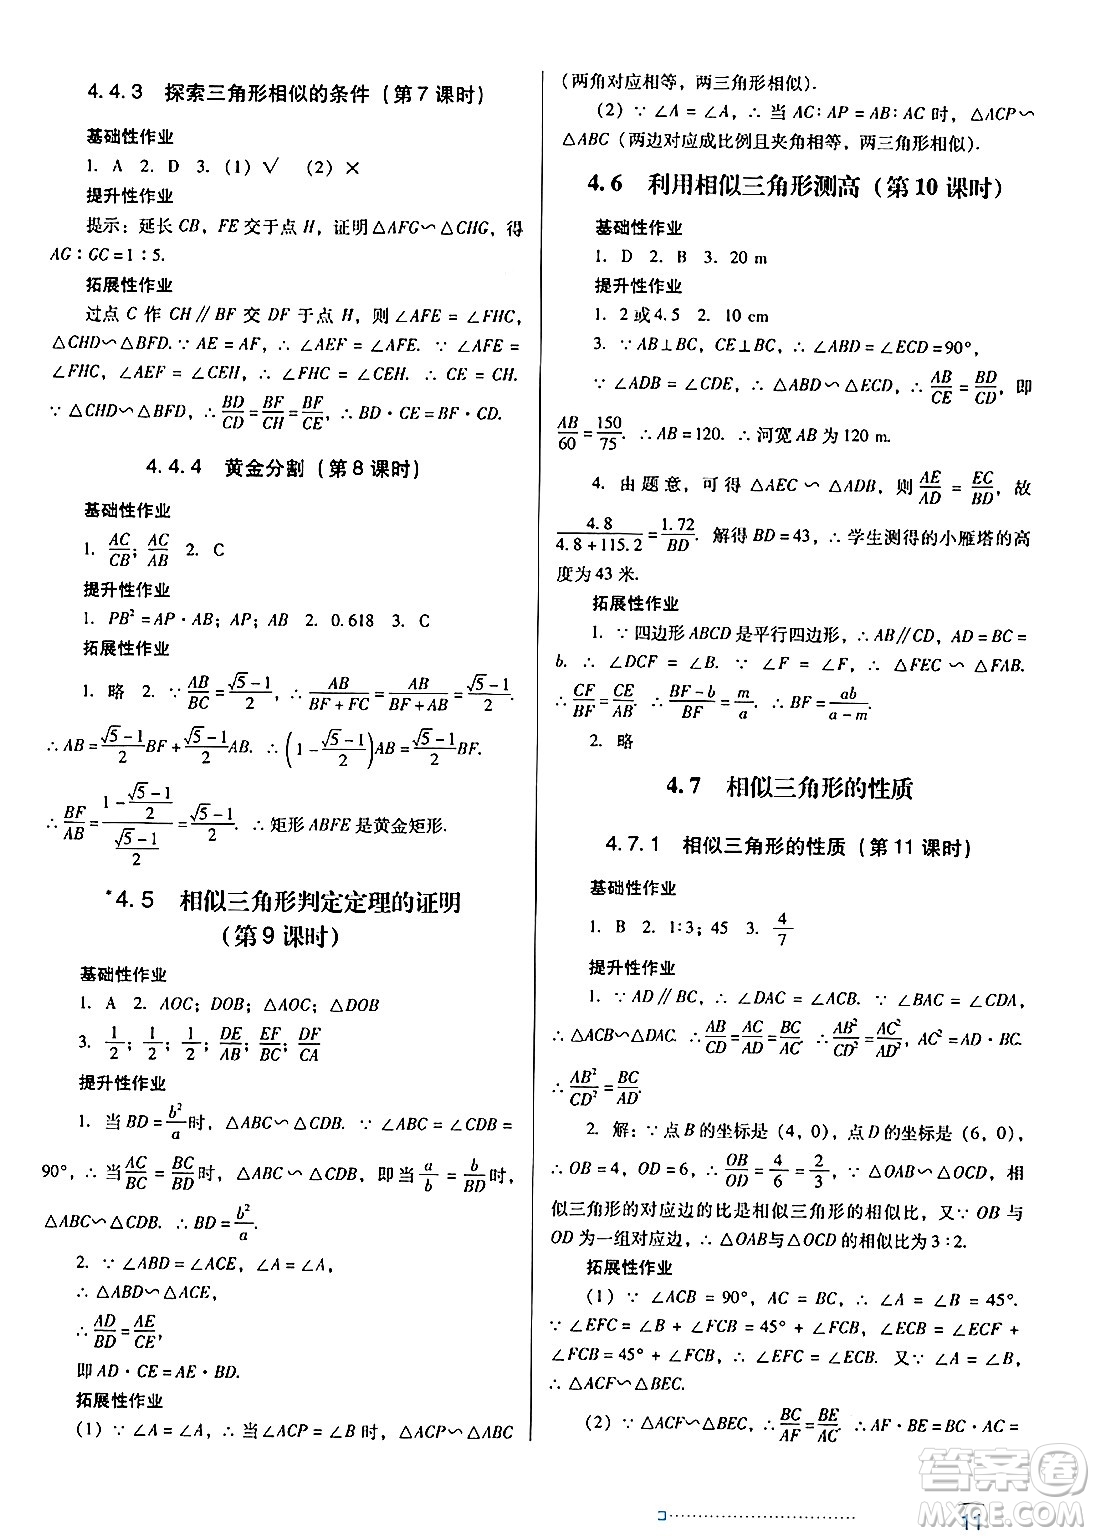 4.4.3 探索三角形相似的条件(第7课时)
基础性作业
1. A 2. D 3. (1) √ (2) ×
提升性作业
提示:延长 CB, FE 交于点 H, 证明 △AFG∽△CHG, 得
AG∶GC=1∶5.
拓展性作业
过点 C 作 CH∥BF 交 DF 于点 H, 则 ∠AFE = ∠FHC,
△CHD∽△BFD. ∵ AE = AF, ∴ ∠AEF = ∠AFE. ∵ ∠AFE =
∠FHC, ∠AEF = ∠CEH, ∴ ∠FHC = ∠CEH. ∴ CE = CH.
∵ △CHD∽△BFD, ∴ BD/CD = BF/CH = BF/CE, ∴ BD·CE = BF·CD.
4.4.4 黄金分割(第8课时)
基础性作业
1. AC/CB; AC/AB 2. C
提升性作业
1. PB²=AP·AB; AP; AB 2. 0.618 3. C
拓展性作业
1. 略 2. ∵ AB/BC = (√5-1)/2, ∴ AB/(BF+FC) = AB/(BF+AB) = (√5-1)/2.
∴ AB = (√5-1)/2 BF + (√5-1)/2 AB. ∴ (1-(√5-1)/2)AB = (√5-1)/2 BF.
∴ BF/AB = (1-(√5-1)/2)/((√5-1)/2) = (√5-1)/2. ∴ 矩形 ABFE 是黄金矩形.
*4.5 相似三角形判定定理的证明
(第9课时)
基础性作业
1. A 2. AOC; DOB; △AOC; △DOB
3. 1/2; 1/2; 1/2; DE/AB; EF/BC; DF/CA
提升性作业
1. 当 BD = b²/a 时, △ABC∽△CDB. ∵ ∠ABC = ∠CDB =
90°, ∴ 当 AC/BC = BC/BD 时, △ABC∽△CDB, 即当 a/b = b/BD 时,
△ABC∽△CDB. ∴ BD = b²/a.
2. ∵ ∠ABD = ∠ACE, ∠A = ∠A,
∴ △ABD∽△ACE,
∴ AD/BD = AE/CE,
即 AD·CE = AE·BD.
拓展性作业
(1) ∵ ∠A = ∠A, ∴ 当 ∠ACP = ∠B 时, △ACP∽△ABC
(两角对应相等, 两三角形相似).
(2) ∵ ∠A = ∠A, ∴ 当 AC∶AP = AB∶AC 时, △ACP∽
△ABC (两边对应成比例且夹角相等, 两三角形相似).
4.6 利用相似三角形测高(第10课时)
基础性作业
1. D 2. B 3. 20 m
提升性作业
1. 2或4.5 2. 10 cm
3. ∵ AB⊥BC, CE⊥BC, ∴ ∠ABD = ∠ECD = 90°,
∵ ∠ADB = ∠CDE, ∴ △ABD∽△ECD, ∴ AB/CE = BD/CD, 即
AB/60 = 150/75. ∴ AB = 120. ∴ 河宽 AB 为 120 m.
4. 由题意, 可得 △AEC∽△ADB, 则 AE/AD = EC/BD, 故
4.8/(4.8+115.2) = 1.72/BD. 解得 BD = 43, ∴ 学生测得的小雁塔的高
度为 43 米.
拓展性作业
1. ∵ 四边形 ABCD 是平行四边形, ∴ AB∥CD, AD = BC =
b. ∴ ∠DCF = ∠B. ∵ ∠F = ∠F, ∴ △FEC∽△FAB.
∴ CF/BF = CE/AB. ∴ (BF-b)/BF = m/a. ∴ BF = ab/(a-m).
2. 略
4.7 相似三角形的性质
4.7.1 相似三角形的性质(第11课时)
基础性作业
1. B 2. 1∶3; 45 3. 4/7
提升性作业
1. ∵ AD∥BC, ∴ ∠DAC = ∠ACB. ∵ ∠BAC = ∠CDA,
∴ △ACB∽△DAC. ∴ AB/CD = AC/AD = BC/AC. ∴ AB²/CD² = AC²/AD², AC² = AD·BC.
∴ AB²/CD² = BC/AD.
2. 解: ∵ 点 B 的坐标是 (4, 0), 点 D 的坐标是 (6, 0),
∴ OB = 4, OD = 6, ∴ OB/OD = 4/6 = 2/3, ∵ △OAB∽△OCD, 相
似三角形的对应边的比是相似三角形的相似比, 又∵ OB 与
OD 为一组对应边, ∴ △OAB与△OCD的相似比为 3∶2.
拓展性作业
(1) ∵ ∠ACB = 90°, AC = BC, ∴ ∠A = ∠B = 45°.
∵ ∠EFC = ∠B + ∠FCB = 45° + ∠FCB, ∠ECB = ∠ECF +
∠FCB = 45° + ∠FCB, ∴ ∠EFC = ∠ECB. 又∵ ∠A = ∠B,
∴ △ACF∽△BEC.
(2) ∵ △ACF∽△BEC, ∴ BC/AF = BE/AC. ∴ AF·BE = BC·AC =
11
答案圈
MXQE.COM